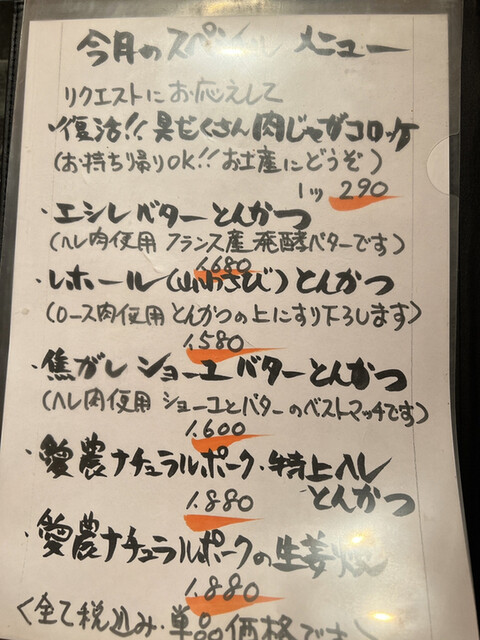 今月のスペシャル メニュー
リクエストにお応えして
・復活!! 具だくさん肉じゃがコロッケ
(お持ち帰りOK!! お土産にどうぞ)
1ツ 290
・エシレバターとんかつ
(ヘレ肉使用 フランス産発酵バターです)
1.680
・レホール(山わさび)とんかつ
(ロース肉使用 とんかつの上にすり下ろします)
1.580
・焦がし ショーユ バターとんかつ
(ヘレ肉使用 ショーユとバターのベストマッチです)
1.600
・愛農ナチュラルポーク・特上ヘレ
とんかつ
1.880
・愛農ナチュラルポークの生姜焼
1.880
<全て税込み・単品価格です>